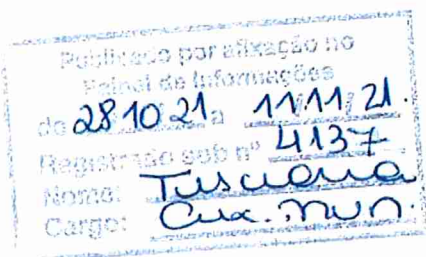 Publicado por afixação no
Painel de Informações
de 28 10 21 a 11/11/21.
Registrado sob nº 4137
Nome:
Cargo: Aux. mun.